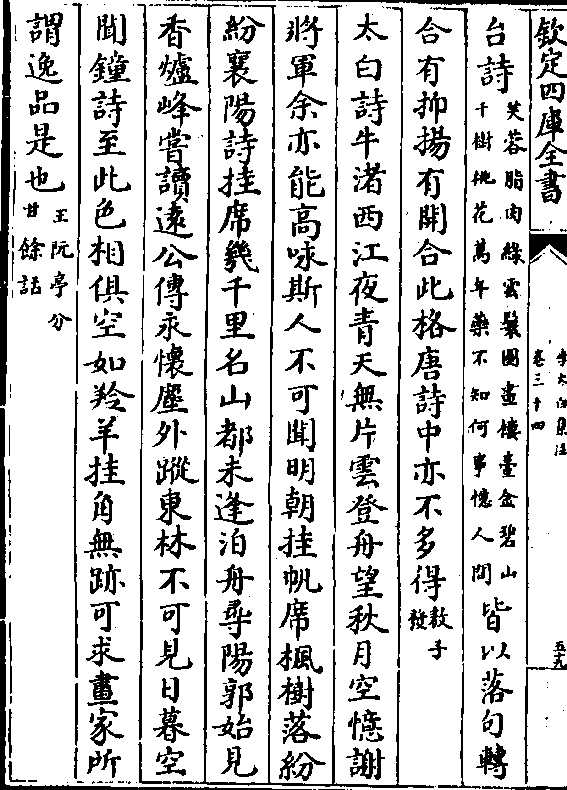 欽定四庫全書
李太白集注
卷三十四
五九
台詩芙蓉脂肉綠雲鬟圖畫樓臺金碧山千樹桃花萬年藥不知何事憶人間皆以落句轉
合有抑揚有開合此格唐詩中亦不多得敖子發
太白詩牛渚西江夜青天無片雲登舟望秋月空憶謝
將軍余亦能高咏斯人不可聞明朝挂帆席楓樹落紛
紛襄陽詩挂席幾千里名山都未逢泊舟尋陽郭始見
香爐峰嘗讀遠公傳永懷塵外蹤東林不可見日暮空
聞鐘詩至此色相俱空如羚羊挂角無跡可求畫家所
謂逸品是也王阮亭分甘餘話